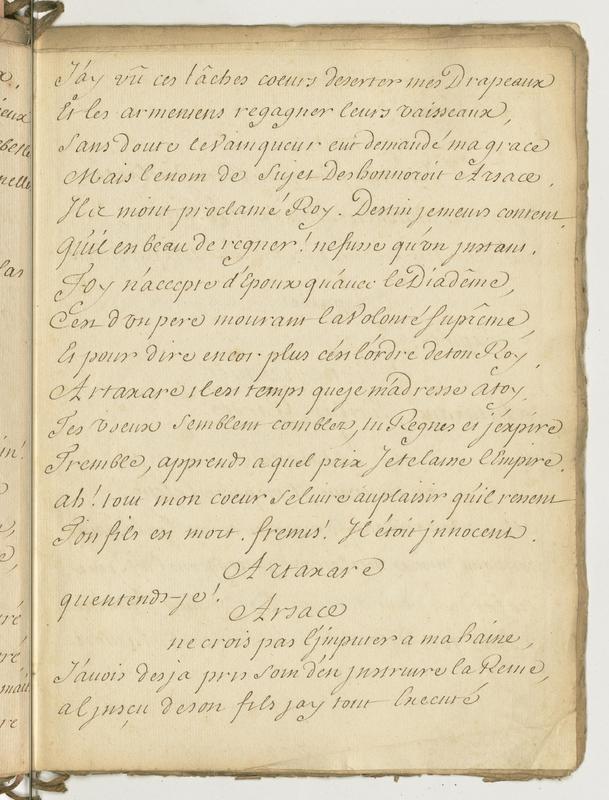 J'ay vû ces lâches coeurs deserter mes Drapeaux
Et les armeniens regagner leurs vaisseaux,
Sans doute le Vainqueur eut demandé ma grace
Mais le nom de Sujet Deshonnoroit Arsace.
Ils m'ont proclamé Roy. Destin je meurs content
Qu'il est beau de regner! ne fusse qu'un jnstant.
Toy n'accepte d'Epoux qu'avec le Diadême,
C'est d'vn pere mourant la Volonté suprême,
Et pour dire encor plus c'est l'ordre de ton Roy,
Artaxare il est temps que je m'adresse a toy,
Tes voeux semblent comblez, tu Regnes et j'expire
Tremble, apprends a quel prix Je te laisse l'Empire.
ah! tout mon coeur se livre au plaisir qu'il ressent
Ton fils est mort. fremis! Il étoit jnnocent.
Artaxare
qu'entends-je!
Arsace
ne crois pas l'jmputer a ma haine,
J'avois desja pris soin d'en jnstruire la Reine,
a l'jnsçu de son fils j'ay tout Executé